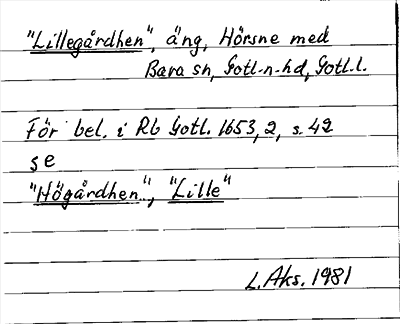 "Lillegårdhen", äng, Hörsne med
Bara sn, Gotl.n.hd, Gotl.l.
För bel. i Rb Gotl. 1653, 2, s. 42
se
"Högårdhen", "Lille"
L. Aks. 1981